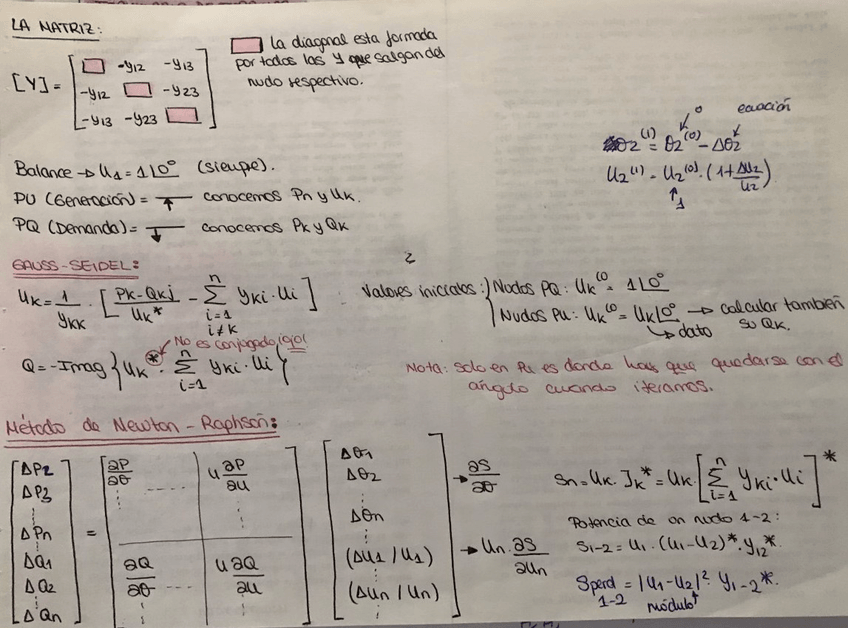 LA MATRIZ:
[Y] = [ □ -y12 -y13
-y12 □ -y23
-y13 -y23 □ ]
□ La diagonal esta formada
por todos las y que salgan del
nudo respectivo.
Balance → U1 = 1∠0° (siempre).
PU (Generación) = conocemos Pn y Uk.
PQ (Demanda) = conocemos Pk y Qk
θ2^(1) = θ2^(0) - Δθ2
0
ecuación
U2^(1) = U2^(0) · (1 + ΔU2/U2)
1
GAUSS-SEIDEL:
Uk = 1/ykk · [ (Pk - Qkj)/Uk* - Σ(i=1, i≠k → n) yki · Ui ]
2
Valores iniciales: { Nudos PQ: Uk^(0) = 1∠0°
Nudos PU: Uk^(0) = Uk∠0° → calcular también
su Qk.
dato
No es conjugado, ¡ojo!
Q = -Imag { Uk* · Σ(i=1 → n) yki · Ui }
Nota: solo en PU es donde hay que quedarse con el
ángulo cuando iteramos.
Método de Newton-Raphson:
[ ΔP2
ΔP3
⋮
ΔPn
ΔQ1
ΔQ2
⋮
ΔQn ]
=
[ ∂P/∂θ ..... U ∂P/∂U
∂Q/∂θ ..... U ∂Q/∂U ]
[ Δθ1
Δθ2
⋮
Δθn
⋮
(ΔU1/U1)
(ΔUn/Un)
⋮ ]
→ ∂S/∂θ
→ Un · ∂S/∂Un
Sn = Uk · Jk* = Uk · [ Σ(i=1 → n) yki · Ui ]*
Potencia de un nudo 1-2:
S1-2 = U1 · (U1 - U2)* · y12*.
Sperd 1-2 = |U1 - U2|² · y1-2*.
módulo